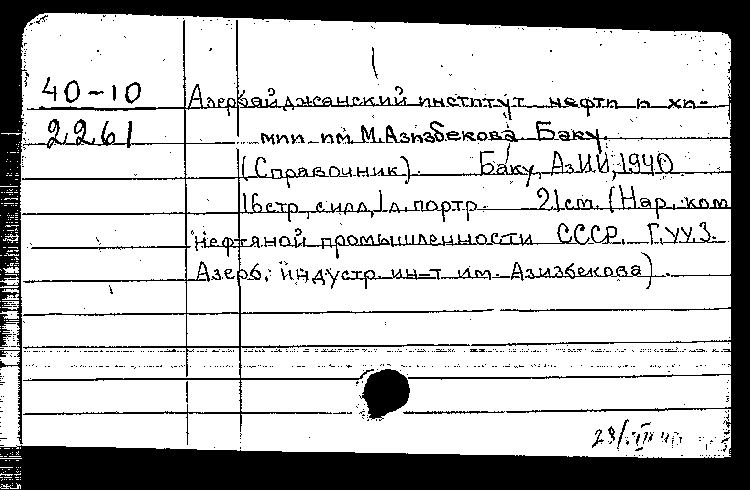 40-10
2261
Азербайджанский институт нефти и хи-
мии им М.Азизбекова Баку.
(Справочник). Баку, АзИИ, 1940
16стр. с илл, 1 л. портр. 21cm. (Нар. ком
нефтяной промышленности СССР. Г.УУ.З.
Азерб. индустр. ин-т им. Азизбекова).